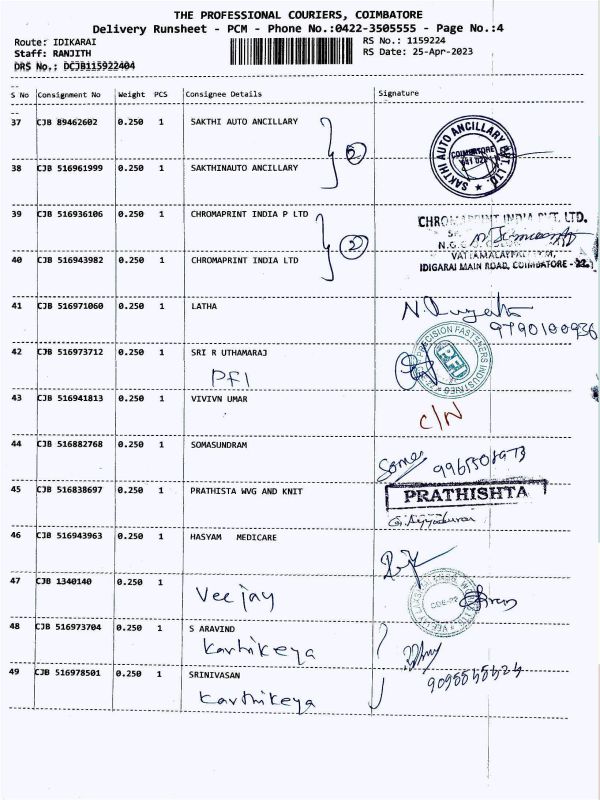 THE PROFESSIONAL COURIERS, COIMBATORE
Delivery Runsheet - PCM - Phone No.:0422-3505555 - Page No.:4
Route: IDIKARAI RS No.: 1159224
Staff: RANJITH RS Date: 25-Apr-2023
DRS No.: DCJB115922404
S No Consignment No Weight PCS Consignee Details Signature
37 CJB 89462602 0.250 1 SAKTHI AUTO ANCILLARY
2
SAKTHI AUTO ANCILLARY PVT. LTD.
COIMBATORE
38 CJB 516961999 0.250 1 SAKTHINAUTO ANCILLARY
39 CJB 516936106 0.250 1 CHROMAPRINT INDIA P LTD
2
CHROMAPRINT INDIA PVT. LTD.
VATTAMALAYPALAYAM,
IDIGARAI MAIN ROAD, COIMBATORE - 22.
40 CJB 516943982 0.250 1 CHROMAPRINT INDIA LTD
41 CJB 516971060 0.250 1 LATHA
9790100936
42 CJB 516973712 0.250 1 SRI R UTHAMARAJ
PFI
PRECISION FASTENERS INDUSTRIES
PFI
43 CJB 516941813 0.250 1 VIVIVN UMAR
C/N
44 CJB 516882768 0.250 1 SOMASUNDRAM
45 CJB 516838697 0.250 1 PRATHISTA WVG AND KNIT
PRATHISHTA
46 CJB 516943963 0.250 1 HASYAM MEDICARE
47 CJB 1340140 0.250 1
Veejay
48 CJB 516973704 0.250 1 S ARAVIND
Karthikeya
49 CJB 516978501 0.250 1 SRINIVASAN
Karthikeya